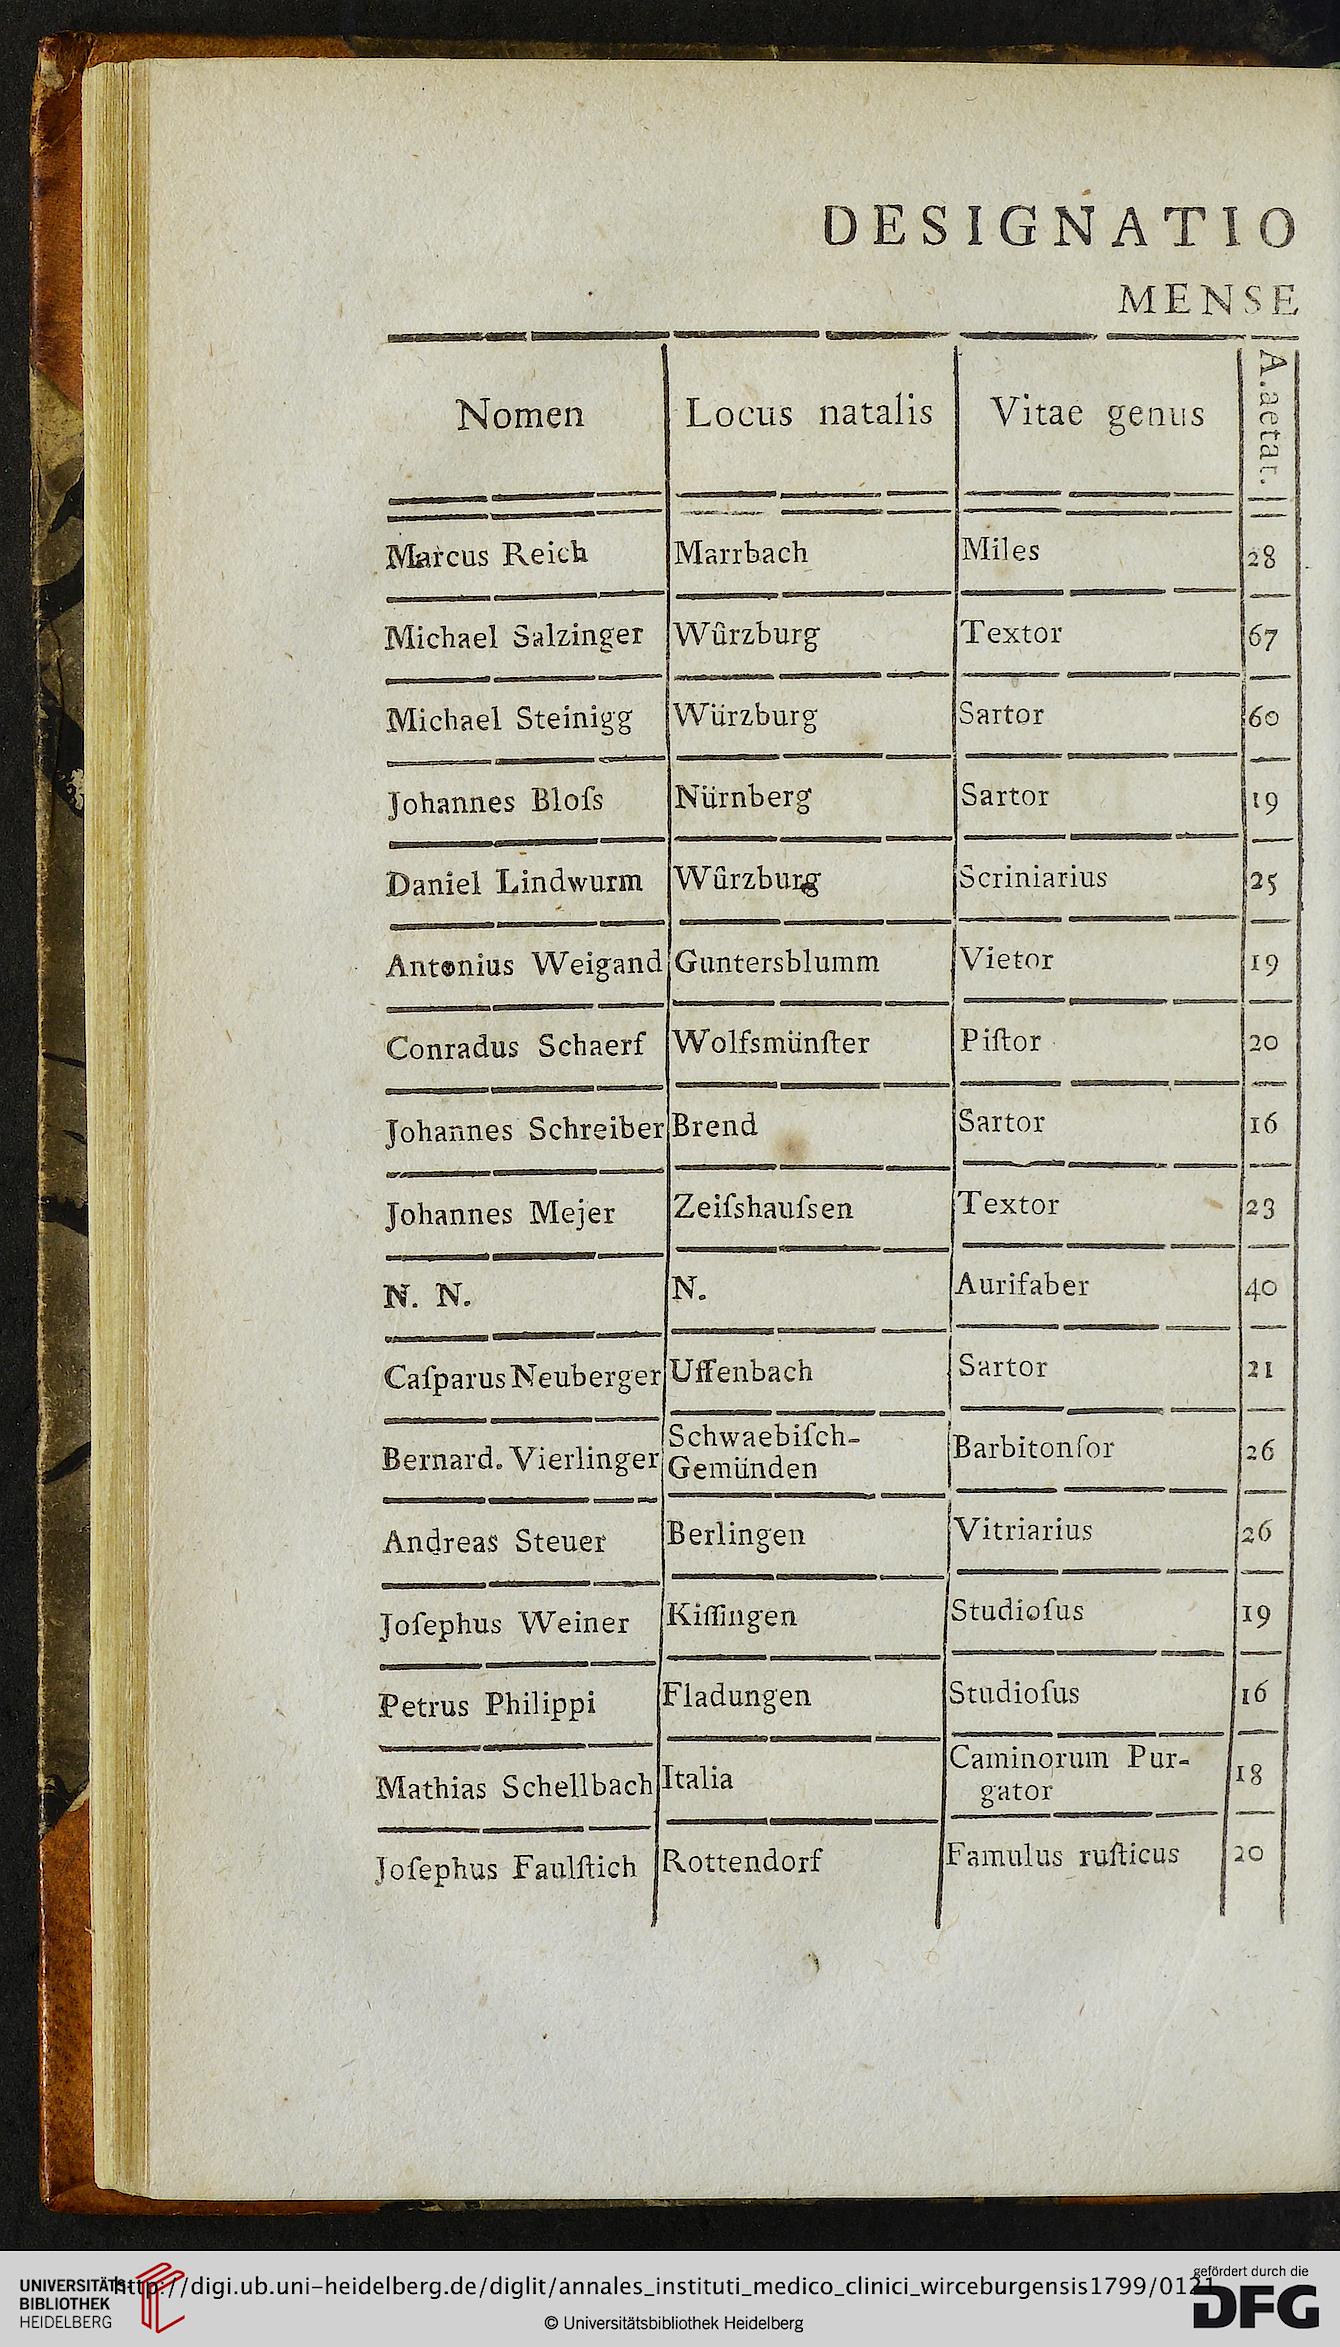 DESIGNATIO
MENSE
Nomen Locus natalis Vitae genus A. aetat.
Marcus Reich Marrbach Miles 28
Michael Salzinger Wûrzburg Textor 67
Michael Steinigg Würzburg Sartor 60
Johannes Bloſs Nürnberg Sartor 19
Daniel Lindwurm Wûrzburg Scriniarius 25
Antonius Weigand Guntersblumm Vietor 19
Conradus Schaerf Wolfsmünſter Piſtor 20
Johannes Schreiber Brend Sartor 16
Johannes Mejer Zeiſshauſsen Textor 23
N. N. N. Aurifaber 40
Caſparus Neuberger Uffenbach Sartor 21
Bernard. Vierlinger Schwaebiſch-
Gemünden Barbitonſor 26
Andreas Steuer Berlingen Vitriarius 26
Joſephus Weiner Kiſſingen Studioſus 19
Petrus Philippi Fladungen Studioſus 16
Mathias Schellbach Italia Caminorum Pur-
gator 18
Joſephus Faulſtich Rottendorf Famulus ruſticus 20
UNIVERSITÄTS-
BIBLIOTHEK
HEIDELBERG
http://digi.ub.uni-heidelberg.de/diglit/annales_instituti_medico_clinici_wirceburgensis1799/0121
© Universitätsbibliothek Heidelberg
gefördert durch die
DFG